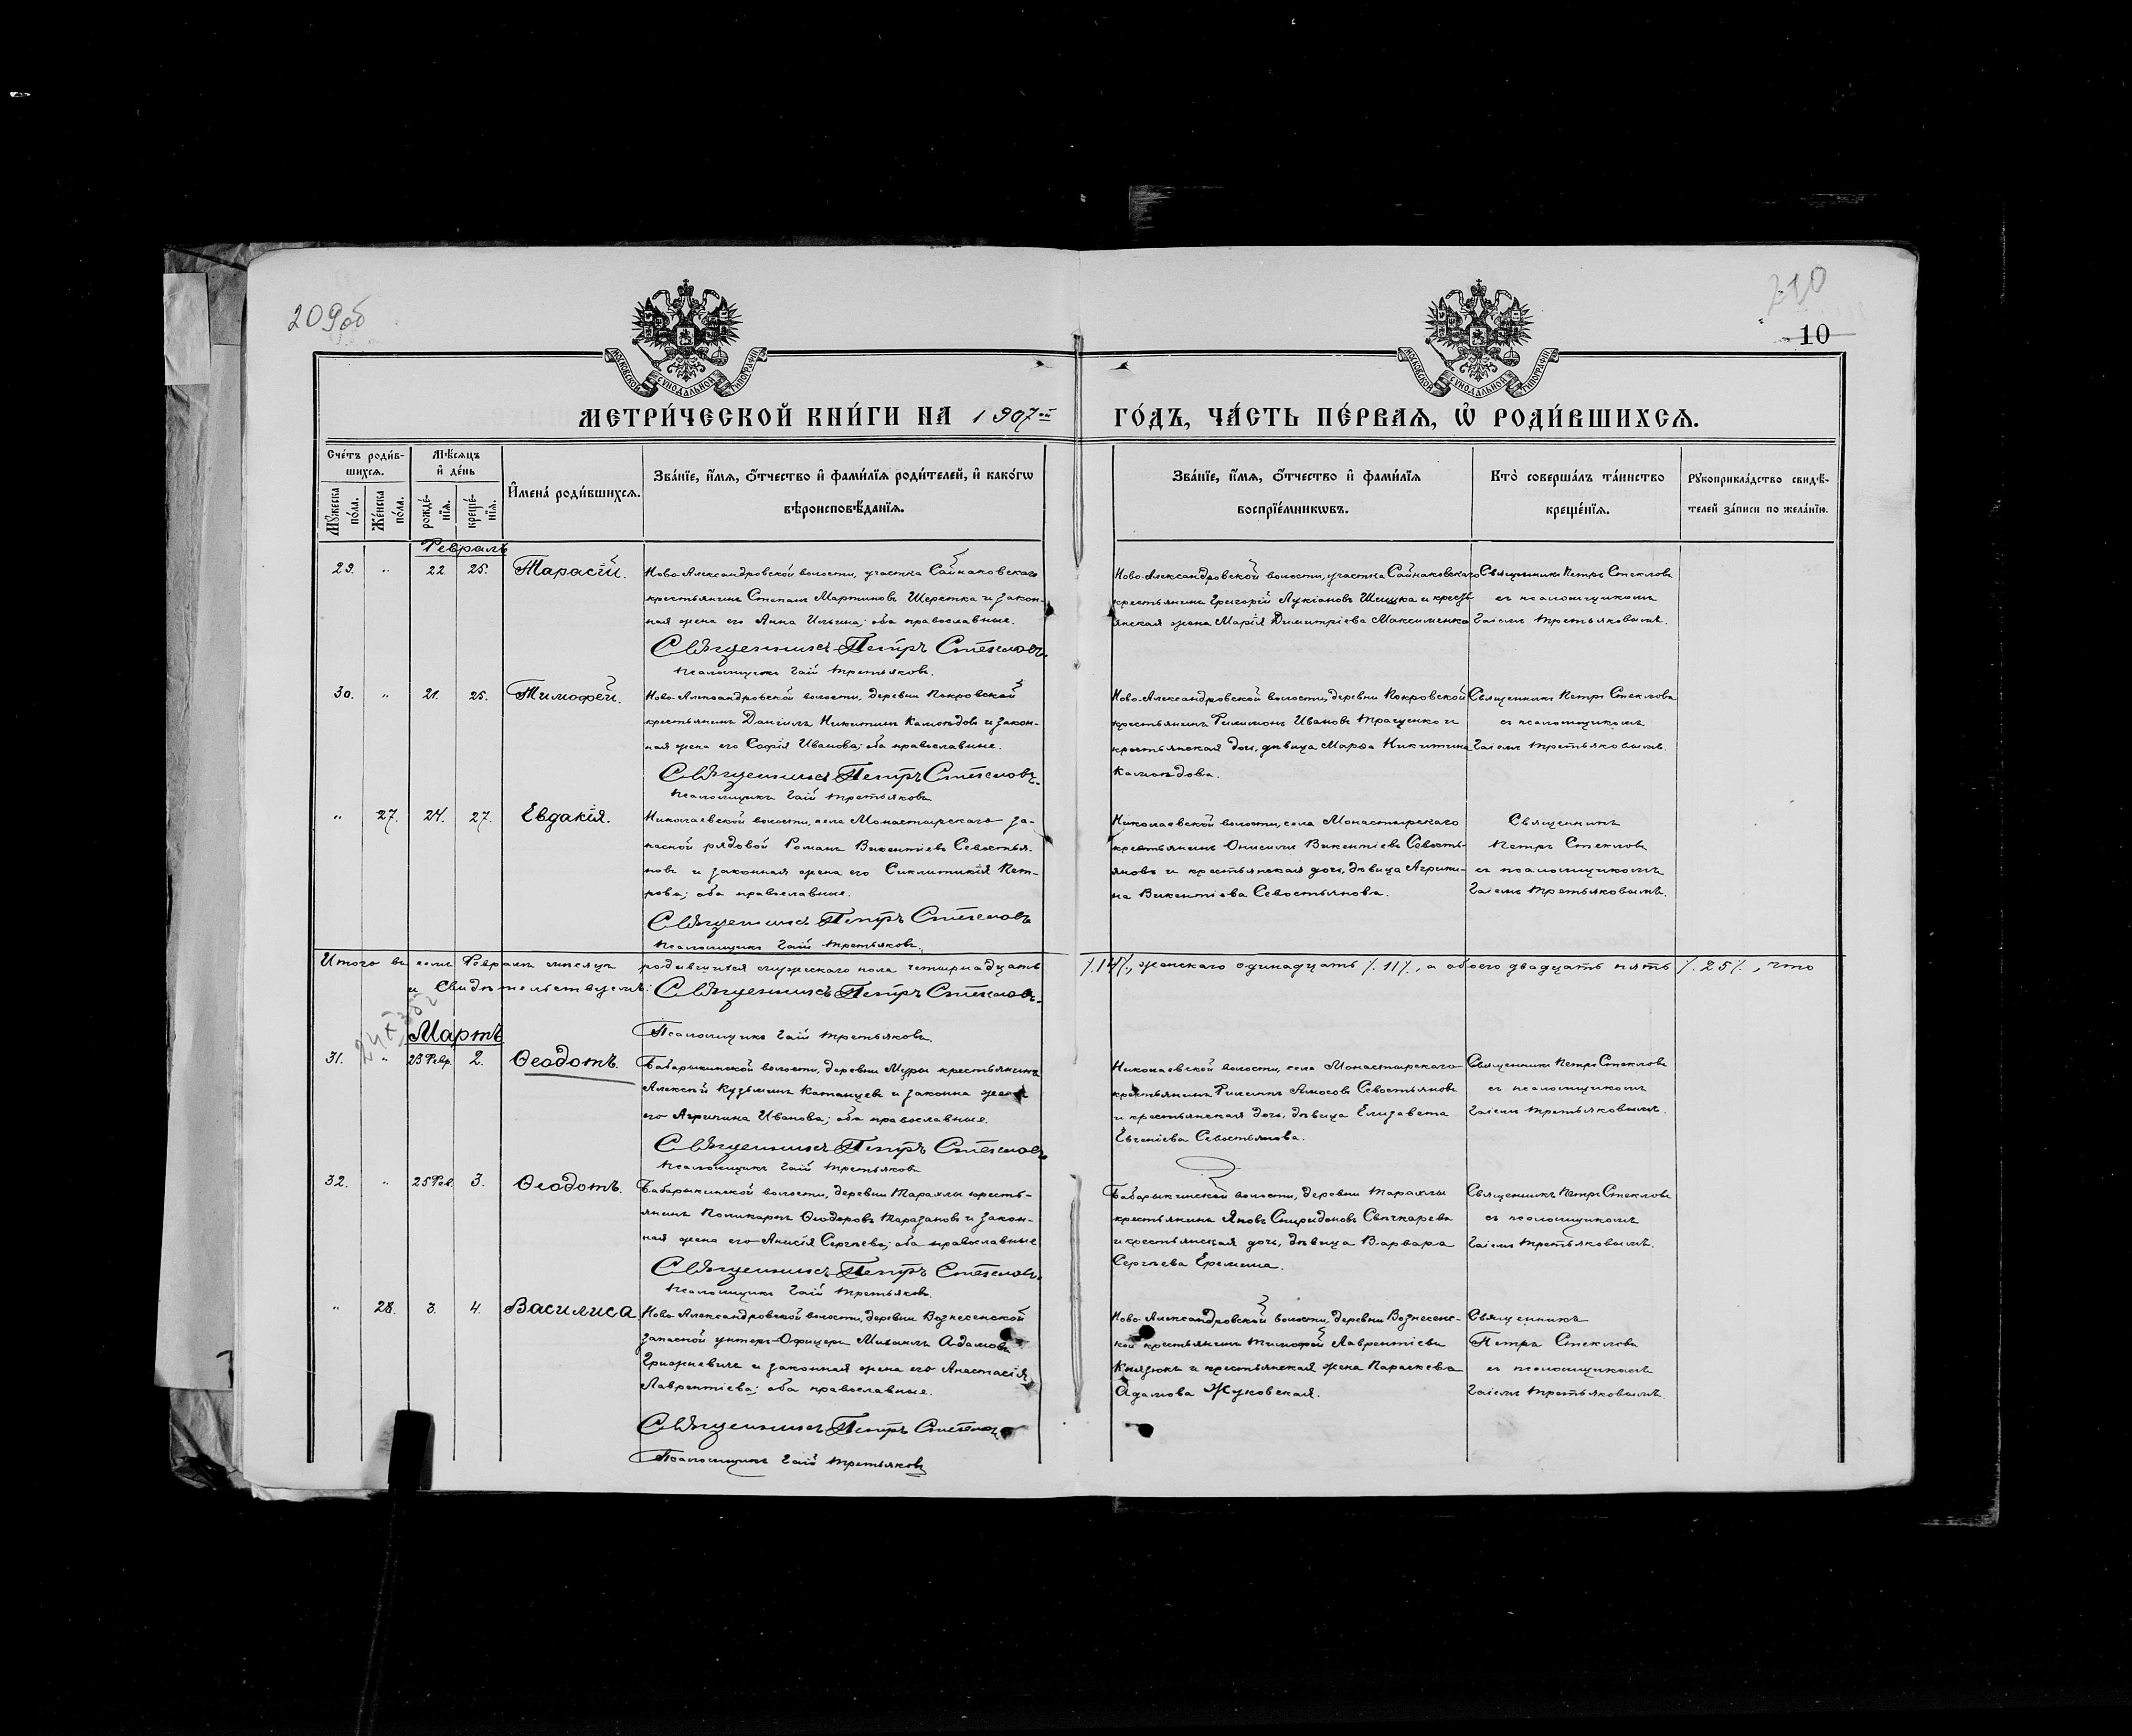 209об
210
10
МОСКОВСКОЙ СѴНОДАЛЬНОЙ ТИПОГРАФІИ
МОСКОВСКОЙ СѴНОДАЛЬНОЙ ТИПОГРАФІИ
МЕТРИ́ЧЕСКОЙ КНИ́ГИ НА 1907ой ГО́ДЪ, ЧА́СТЬ ПЕ́РВАЯ, Ѡ҆ РОДИ́ВШИХСЯ.
Сче́тъ роди́в-
шихся.
Мꙋ́жеска по́ла.
Же́нска по́ла.
Мѣ́сяцъ
и҆ де́нь
рожде́-
нїя.
креще́-
нїя.
И҆мена̀ роди́вшихся.
Зва́нїе, и҆́мя, ѻ҆́тчество и҆ фами́лїя роди́телей, и҆ како́гѡ
вѣроисповѣ́данїя.
Зва́нїе, и҆́мя, ѻ҆́тчество и҆ фами́лїя
воспрїе́мникѡвъ.
Кто̀ соверша́лъ та́инство
креще́нїя.
Рꙋкоприкла́дство свидѣ́-
телей за́писи по жела́нїю.
Февраль
29. " 22. 25. Тарасій.
Ново-Александровской волости, участка Сайнаковскаго
крестьянинъ Степанъ Мартиновъ Шерстка и закон-
ная жена его Анна Ильина; оба православные.
Священникъ Петръ Стекловъ.
Псаломщикъ Гаій Третьяковъ.
Ново-Александровской волости, участка Сайнаковскаго
крестьянинъ Григорій Лукіановъ Шишка и кресть-
янская жена Марія Димитріева Максименко
Священникъ Петръ Стекловъ
съ псаломщикомъ
Гаіемъ Третьяковымъ.
30. " 21. 25. Тимофей.
Ново-Александровской волости, деревни Покровской
крестьянинъ Даніилъ Никитинъ Камондовъ и закон-
ная жена его Софія Иванова; оба православные.
Священникъ Петръ Стекловъ.
Псаломщикъ Гаій Третьяковъ
Ново-Александровской волости, деревни Покровской
крестьянинъ Филимонъ Ивановъ Тращенко и
крестьянская дочь, дѣвица Марѳа Никитина
Камондова.
Священникъ Петръ Стекловъ
съ псаломщикомъ
Гаіемъ Третьяковымъ.
" 27. 24. 27. Евдакія.
Николаевской волости, села Монастырскаго за-
пасной рядовой Романъ Викентіевъ Севостья-
новъ и законная жена его Синклитикія Пет-
рова; оба православные.
Священникъ Петръ Стекловъ
Псаломщикъ Гаій Третьяковъ.
Николаевской волости, села Монастырскаго
крестьянинъ Онисимъ Викентіевъ Севость-
яновъ и крестьянская дочь, дѣвица Агрипи-
на Викентіева Севостьянова.
Священникъ
Петръ Стекловъ
съ псаломщикомъ
Гаіемъ Третьяковымъ.
Итого въ семъ Февралѣ мѣсяцѣ родившихся мужескаго пола четырнадцать /.14/., женскаго одинадцать /.11/., а обоего двадцать пять /.25/., что
и свидѣтельствуемъ: Священникъ Петръ Стекловъ.
Псаломщикъ Гаій Третьяковъ.
Мартъ
31. " 23 Февр. 2. Ѳеодотъ.
Бабарыкинской волости, деревни Муры крестьянинъ
Алексѣй Кузьминъ Катанцевъ и законна жена
его Агрипина Иванова; оба православные.
Священникъ Петръ Стекловъ.
Псаломщикъ Гаій Третьяковъ
Николаевской волости, села Монастырскаго
крестьянинъ Филиппъ Амосовъ Севостьяновъ
и крестьянская дочь, дѣвица Елизавета
Евгеніева Севостьянова.
Священникъ Петръ Стекловъ
съ псаломщикомъ
Гаіемъ Третьяковымъ.
32. " 25 Фев. 3. Ѳеодотъ.
Бабарыкинской волости, деревни Тараклы кресть-
янинъ Поликарпъ Ѳеодоровъ Таразановъ и закон-
ная жена его Анисія Сергѣева; оба православные
Священникъ Петръ Стекловъ.
Псаломщикъ Гаій Третьяковъ.
Бабарыкинской волости, деревни Тараклы
крестьянинъ Яковъ Спиридоновъ Свѣчкаревъ
и крестьянская дочь, дѣвица Варвара
Сергѣева Еремина.
Священникъ Петръ Стекловъ
съ псаломщикомъ
Гаіемъ Третьяковымъ.
" 28. 3. 4. Василиса
Ново-Александровской волости, деревни Вознесенской
запасной унтеръ-Офицеръ Михаилъ Адамовъ
Гриоженевичъ и законная жена его Анастасія
Лаврентіева; оба православные.
Священникъ Петръ Стекловъ
Псаломщикъ Гаій Третьяковъ
Ново-Александровской волости, деревни Вознесенс-
кой крестьянинъ Тимофей Лаврентіевъ
Князюкъ и крестьянская жена Параскева
Адамова Жуковская.
Священникъ
Петръ Стекловъ
съ псаломщикомъ
Гаіемъ Третьяковымъ.